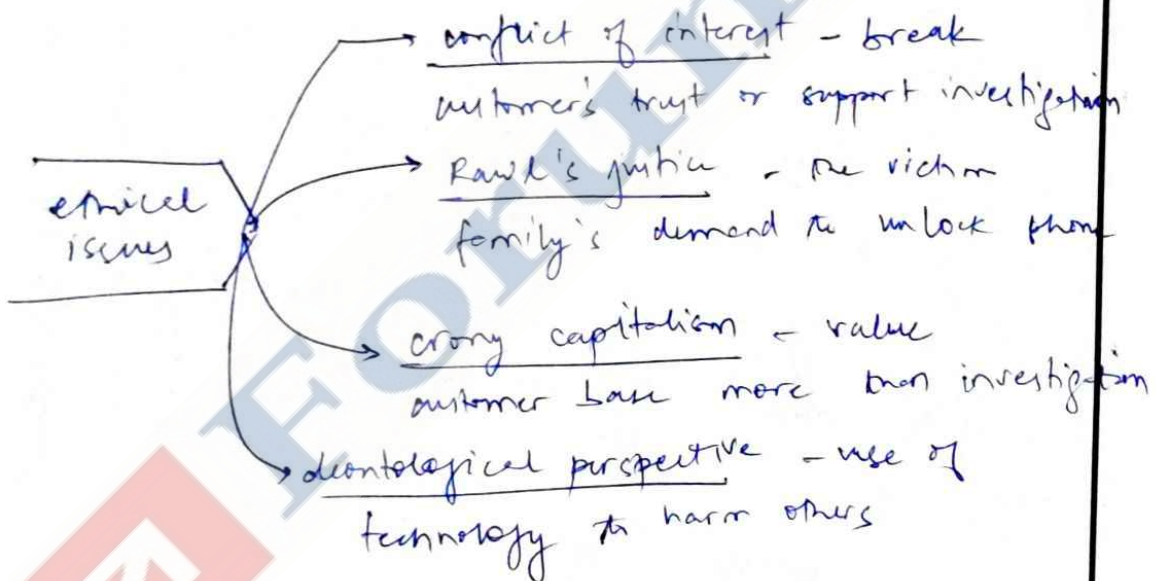 conflict of interest - break
customer's trust or support investigation
ethical
issues
Rawl's justice - the victim
family's demand to unlock phone
crony capitalism - value
customer base more than investigation
deontological perspective - use of
technology to harm others
Forum